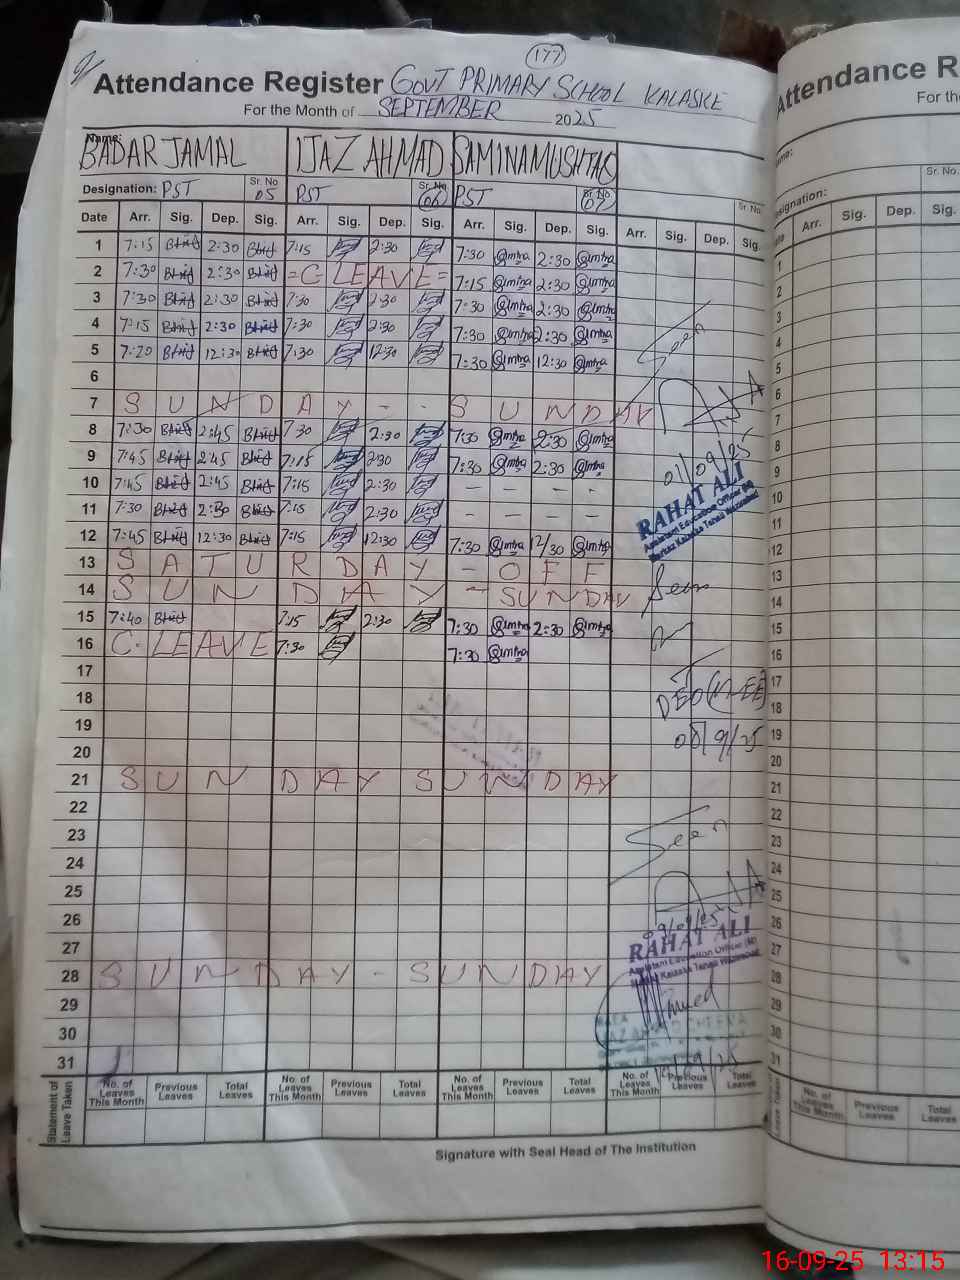 177
Attendance Register GOVT PRIMARY SCHOOL KALASKE
For the Month of SEPTEMBER 2025
Name:
BADAR JAMAL IJAZ AHMAD SAMINA MUSHTAQ
Designation: PST Sr. No 05 PST Sr. No 06 PST Sr. No 07 Sr. No
Date Arr. Sig. Dep. Sig. Arr. Sig. Dep. Sig. Arr. Sig. Dep. Sig. Arr. Sig. Dep. Sig.
1 7:15 2:30 7:15 2:30 7:30 2:30
2 7:30 2:30 = C LEAVE = 7:15 2:30
3 7:30 2:30 7:30 2:30 7:30 2:30
4 7:15 2:30 7:30 2:30 7:30 2:30
5 7:20 12:30 7:30 12:30 7:30 12:30
6
7 SUNDAY - - SUNDAY
8 7:30 2:45 7:30 2:30 7:30 2:30
9 7:45 2:45 7:15 2:30 7:30 2:30
10 7:45 2:45 7:15 2:30 - - - -
11 7:30 2:30 7:15 2:30 - - - -
12 7:45 12:30 7:15 12:30 7:30 12/30
13 SATURDAY - OFF
14 SUNDAY - SUNDAY
15 7:40 7:15 2:30 7:30 2:30
16 C. LEAVE 7:30 7:30
17
18
19
20
21 SUNDAY SUNDAY
22
23
24
25
26
27
28 SUNDAY - SUNDAY
29
30
31
Seen
01/09/25
RAHAT ALI
Assistant Education Officer (M)
Seen
DEO (M-EE)
08/9/25
Seen
RAHAT ALI
Assistant Education Officer (M)
Statement of Leave Taken
No. of Leaves This Month Previous Leaves Total Leaves No. of Leaves This Month Previous Leaves Total Leaves No. of Leaves This Month Previous Leaves Total Leaves No. of Leaves This Month Previous Leaves Total Leaves
Signature with Seal Head of The Institution
Attendance R
For th
Sr. No.
Arr. Sig. Dep. Sig.
1
2
3
4
5
6
7
8
9
10
11
12
13
14
15
16
17
18
19
20
21
22
23
24
25
26
27
28
29
30
31
No. of Leaves This Month Previous Leaves Total Leaves
16-09-25 13:15